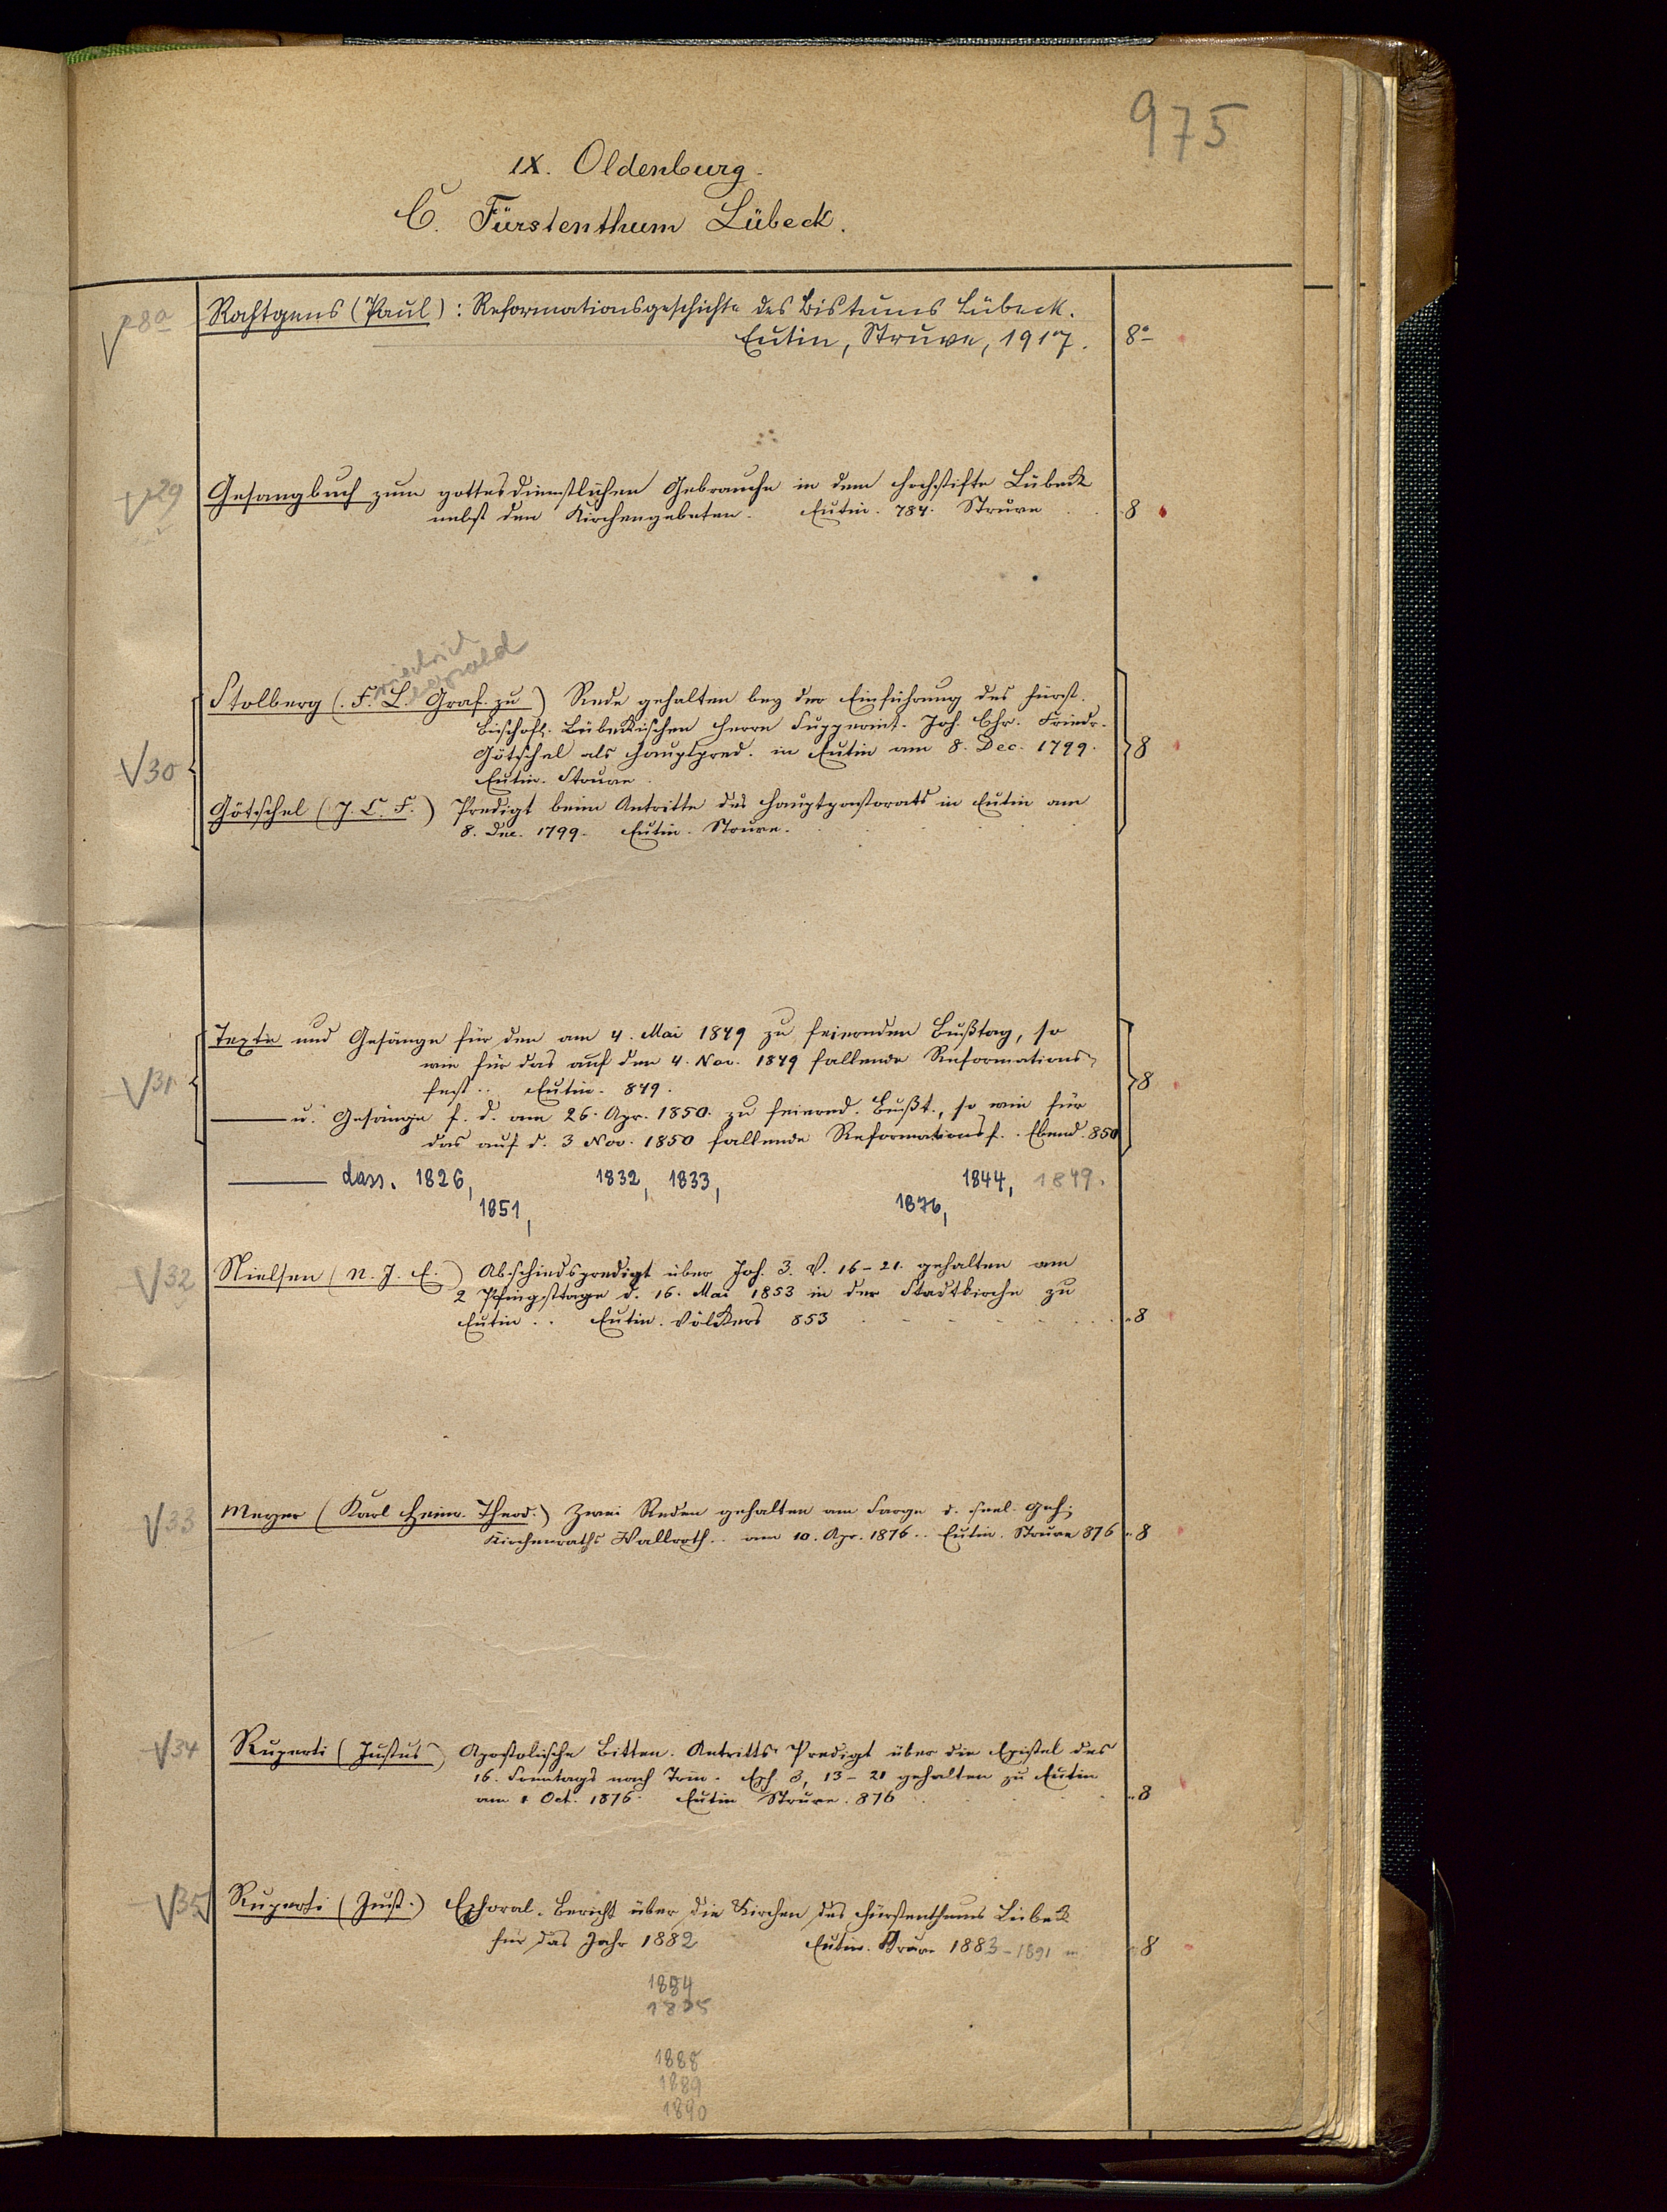 975
IX. Oldenburg.
C. Fürstenthum Lübeck.
p28a Rahtgens (Paul): Reformationsgeschichte des Bistums Lübeck.
Eutin, Struve, 1917. 8°
29 Gesangbuch zum gottesdienstlichen Gebrauche in dem Hochstifte Lübeck
nebst den Kirchengebeten. Eutin. 784. Struve 8
Friedrich Leopold
Stolberg (F. L. Graf. zu) Rede gehalten bey der Einführung des Fürst-
Bischofl. Lübekischen Herrn Supperint. Joh. Chr. Friedr.
V30 Götschel als Hauptpred. in Eutin am 8. Dec. 1799. 8
Eutin. Struve.
Götschel (J. C. F.) Predigt beim Antritte des Hauptpastorats in Eutin am
8. Dec. 1799. Eutin. Struve.
Texte und Gesänge für den am 4. Mai 1849 zu feiernden Bußtag, so
wie für das auf den 4. Nov. 1849 fallende Reformations-
V31 fest.. Eutin. 849. 8
—— u. Gesänge f. d. am 26. Apr. 1850. zu feiernd. Bußt., so wie für
das auf d. 3 Nov. 1850 fallende Reformationsf.. Ebend. 850
—— dass. 1826, 1832, 1833, 1844, 1849.
1851, 1876,
V32 Nielsen (N. J. E.) Abschiedspredigt über Joh. 3. V. 16-21. gehalten am
2 Pfingsttage d. 16. Mai 1853 in der Stadtkirche zu
Eutin.. Eutin. Völckers 853 8
V33 Meyer (Karl Heinr. Theod.) Zwei Reden gehalten am Sarge d. seel. Geh.
Kirchenraths Wallroth.. am 10. Apr. 1876.. Eutin. Struve 876 8
V34 Ruperti (Justus) Apostolische Bitten. Antritts-Predigt über die Epistel des
16. Sonntags nach Trin. Eph 3, 13-21 gehalten zu Eutin
am 1 Oct. 1876. Eutin Struve. 876 8
V35 Ruperti (Just.) Ephoral-Bericht über die Kirchen des Fürstenthums Lübeck
für das Jahr 1882 Eutin. Struve 1883-1891 8
1884
1885
1888
1889
1890